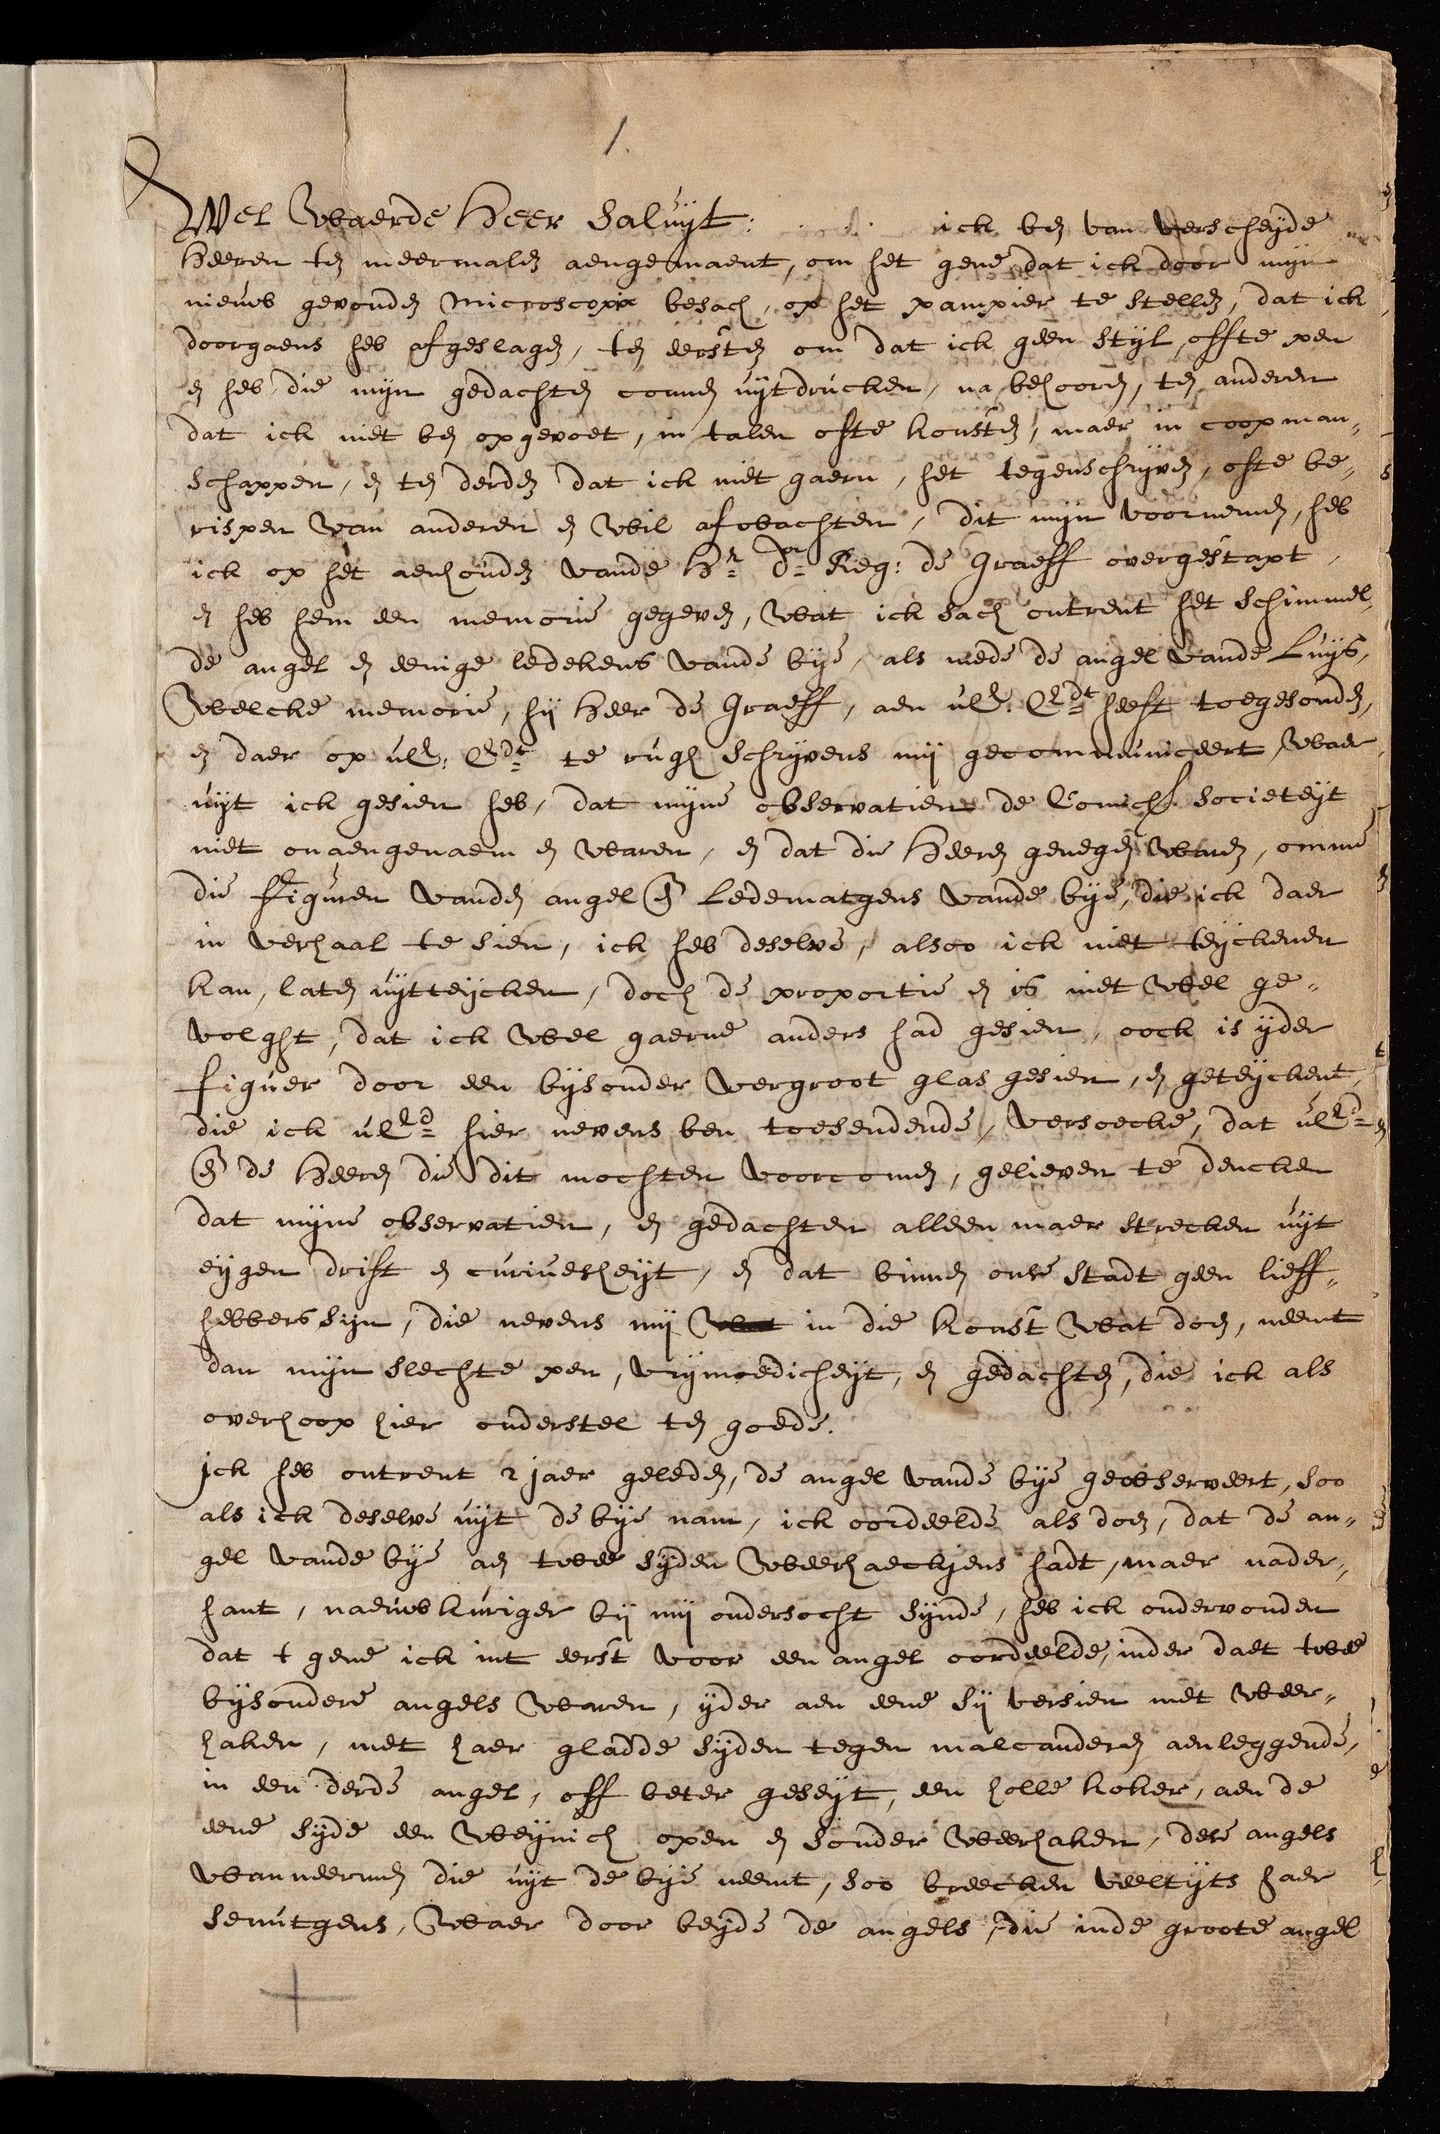 1.
Wel Waerde Heer Saluijt: ick ben van verscheijde
Heeren ten meermalen aengemaent, om het gene dat ick door mijn
nieuw gevonden Microscopix besach, op het pampier te stellen, dat ick
doorgaens heb afgeslagen, ten eersten om dat ick geen stijl, offte pen
en heb, die mijn gedachten connen uijtdrucken, na behooren, ten anderen
dat ick niet ben opgevoet, in talen ofte konsten, maer in coopman-
schappen, en ten derden dat ick niet gaern, het tegenschrijven, ofte be-
rispen van anderen en wil afwachten, dit mijn voornemen, heb
ick op het aenhouden vande Hr. Dr. Reg: de Graeff overgestapt,
en heb hem een memorie gegeven, wat ick sach ontrent het schimmel,
de angel en eenige ledekens vande bije, als mede de angel vande Luijs,
Welcke memorie, hij Heer de Graeff, aen ul: Edt. heeft toegesonden,
en daer op ul: Edt. te rugh schrijvens mij gecommuniceert, waer
uijt ick gesien heb, dat mijne observatien de Conichl. Societeijt
niet onaengenaem en waren, en dat die Heeren genegen waren, omme
die figuren vanden angel en Ledematgens vande bije, die ick daer
in verhaal te sien, ick heb deselve, alsoo ick niet teijckenen
kan, laten uijtteijcken, doch de proportie en is niet wel ge-
volght, dat ick wel gaerne anders had gesien, oock is ijder
figuer door een bijsonder vergroot glas gesien, en geteijckent,
die ick ul.Ed. hier nevens ben toesendende, versoecke, dat ul.Ed.
en de Heeren die dit mochten voorcomen, gelieven te dencken
dat mijne observatien, en gedachten alleen maer strecken uijt
eijgen drift en curiuesheijt, en dat binnen onse Stadt geen lieff-
hebbers sijn, die nevens mij in die konst wat doen, neemt
dan mijn slechte pen, vrijmoedicheijt, en gedachten, die ick als
overhoop hier onderstel ten goede.
ick heb ontrent 2 jaer geleden, de angel vande bije geobserveert, soo
als ick deselve uijt de bije nam, ick oordeelde als doen, dat de an-
gel vande bije aen twee sijden weerhaeckjens hadt, maer nader-
hant, naeuwkuriger bij mij ondersocht sijnde, heb ick ondervonden
dat t gene ick int eerst voor een angel oordeelde, inder daet twee
bijsondere angels waren, ijder aen eene sij versien met weer-
haken, met haer gladde sijden tegen malcanderen aenleggende,
in een derde angel, off beter geseijt, een holle koker, aen de
eene sijde een weijnich open en sonder weerhaken, dese angels
wanneermen die uijt de bije neemt, soo breecken veeltijts haer
senutgens, waer door beijde de angels, die inde groote angel